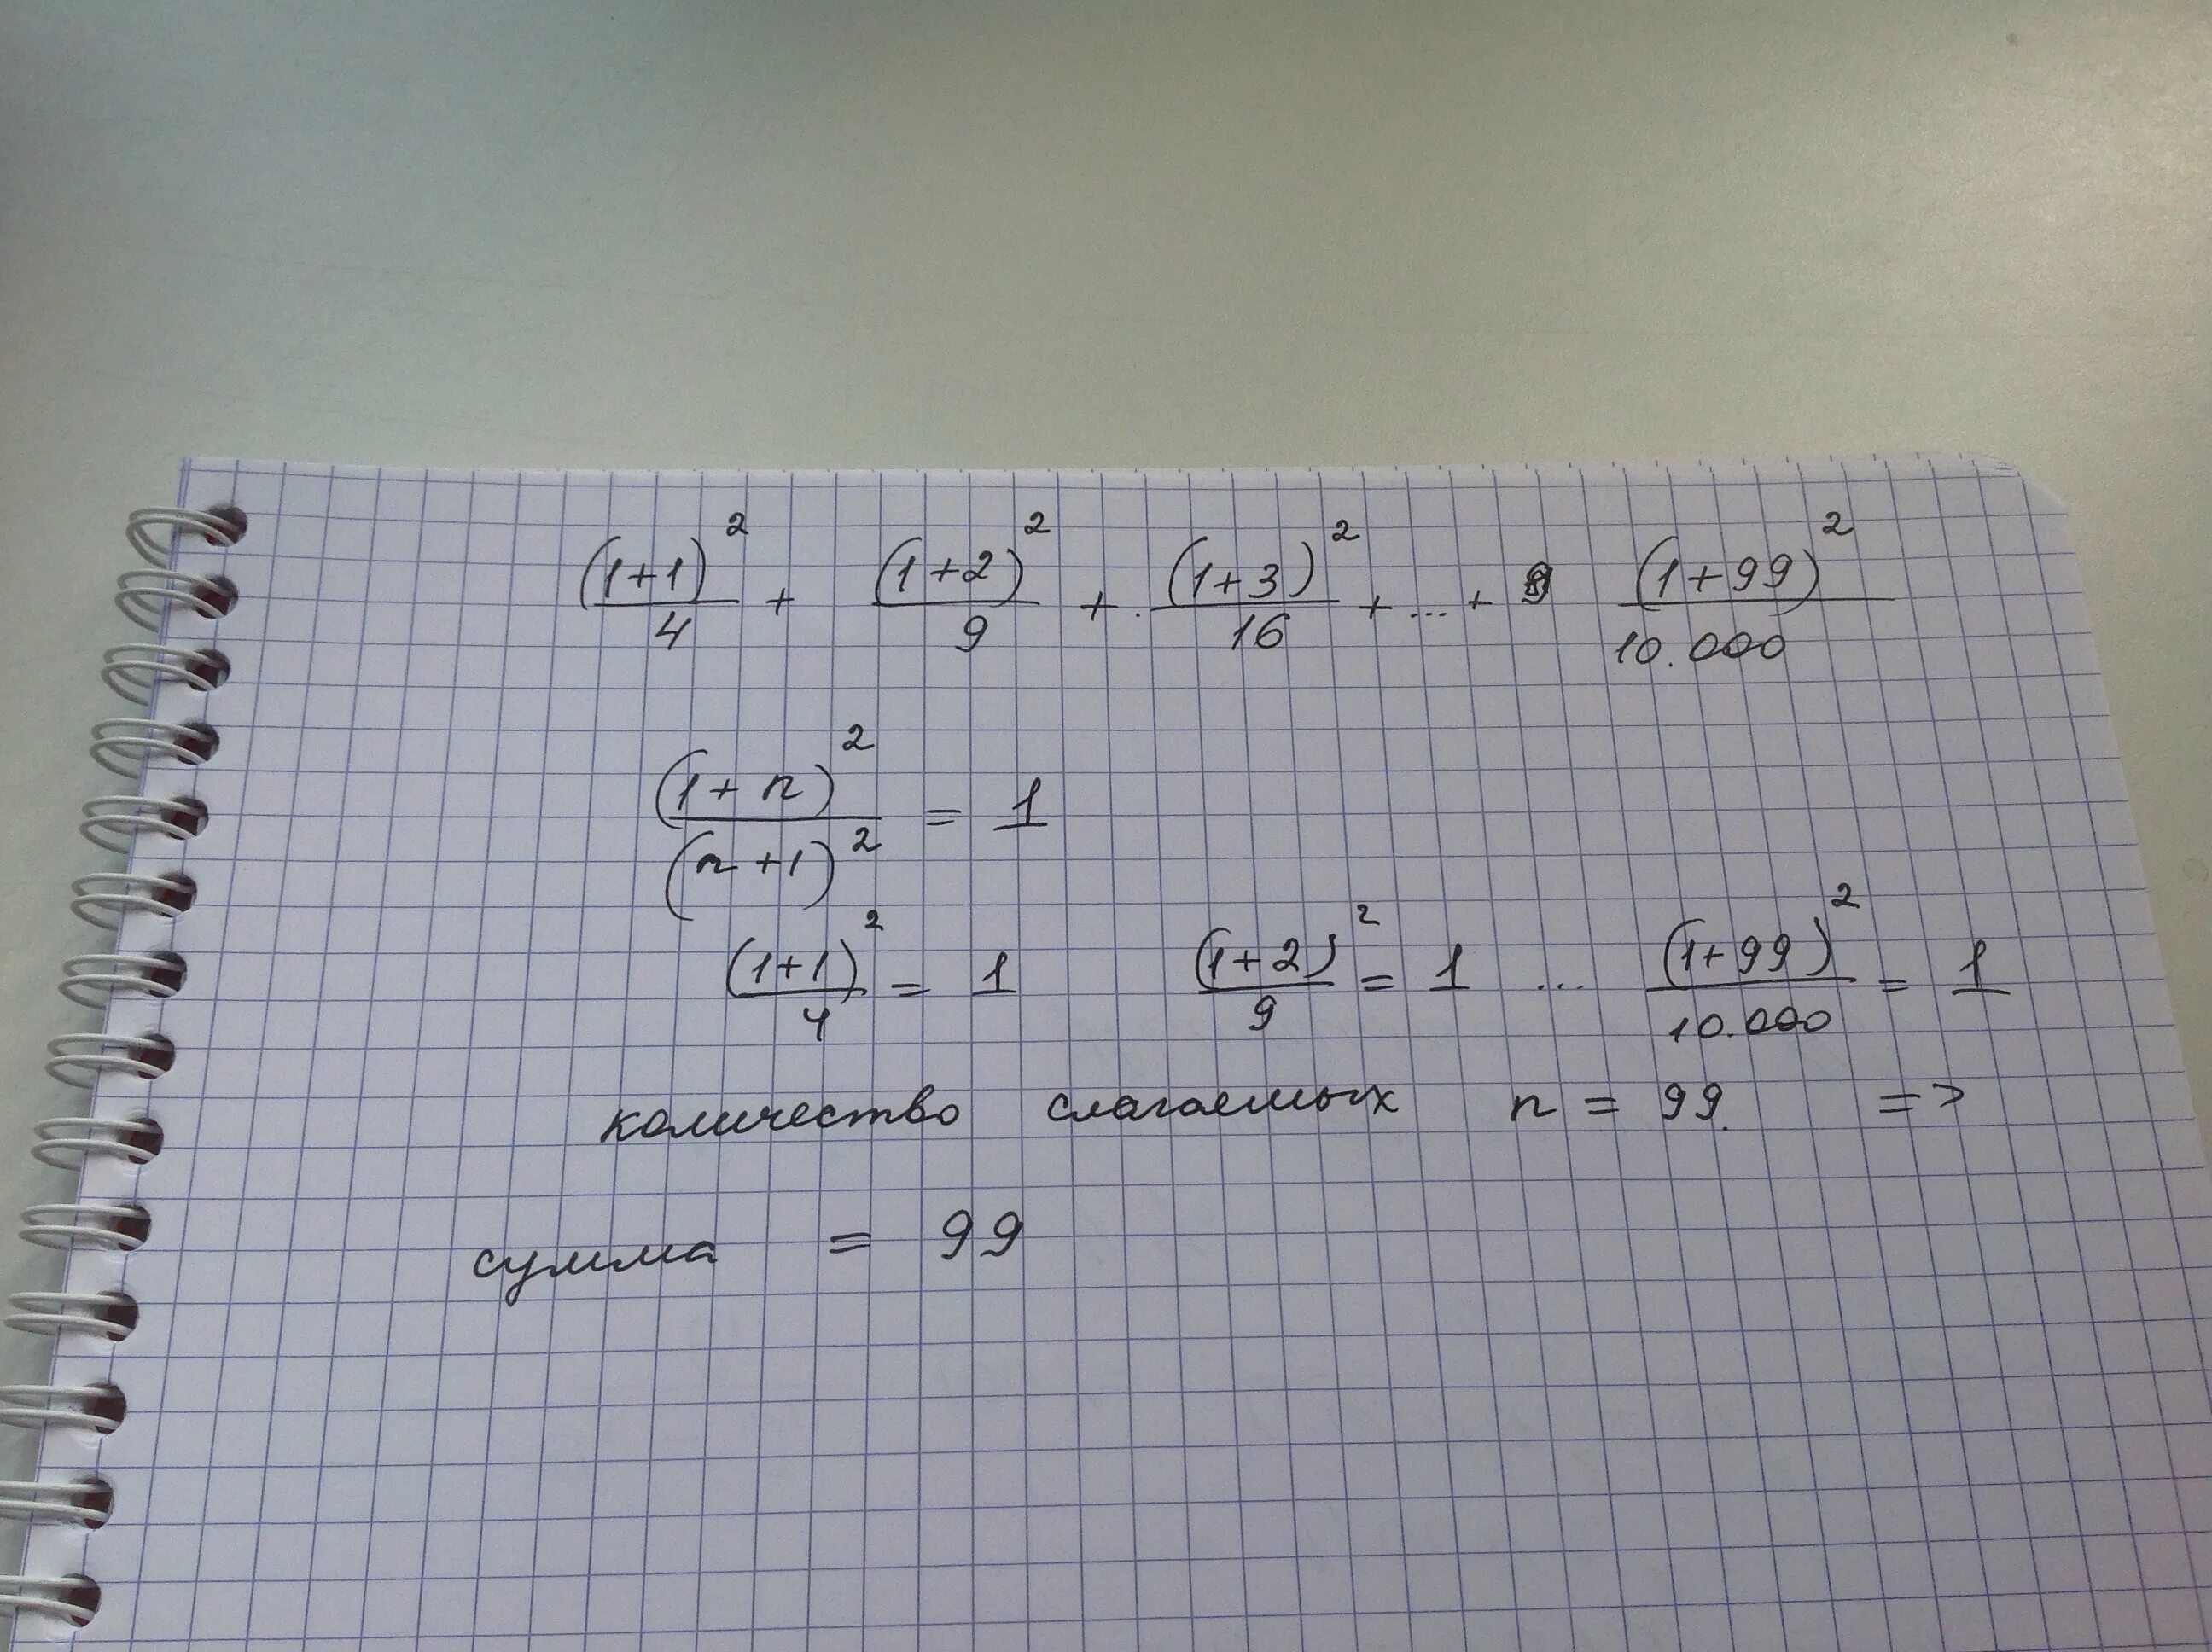 (1+1)²/4 + (1+2)²/9 + (1+3)²/16 + ... + (1+99)²/10.000
(1+n)²/(n+1)² = 1
(1+1)²/4 = 1 (1+2)²/9 = 1 ... (1+99)²/10.000 = 1
количество слагаемых n = 99. =>
сумма = 99